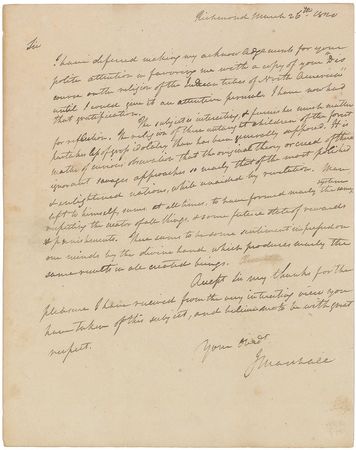 Richmond March 26th 1820
Sir
I have deferred making my acknowledgements for your
polite attention in favoring me worth a copy of your "Dis
course on the religion of the Indian tribes of North America"
until I could give it an attentive perusal. I have now had
that gratification.
The subject is interesting, & furnishes much matter
for reflection. The religion of these untaught children of the forest
partakes less of gross idolatry than has been generally supposed. It is
matter of curious observation that the original theory or creed of these
ignorant savages approaches so nearly that of the most polished
& enlightened nations, while unaided by revelation. Man
left to himself, seems at all times, to have formed nearly the same
respecting the creator of all things, & some future state of rewards
& punishments. There seems to be some sentiment impressed on
our minds by the divine hand which produces nearly the
same results in all created beings.
Accept Sir my thanks for the
pleasure I have received from the very interesting view you
have taken of this subject, and believe me to be with great
respect.
Your Obedt
J Marshall